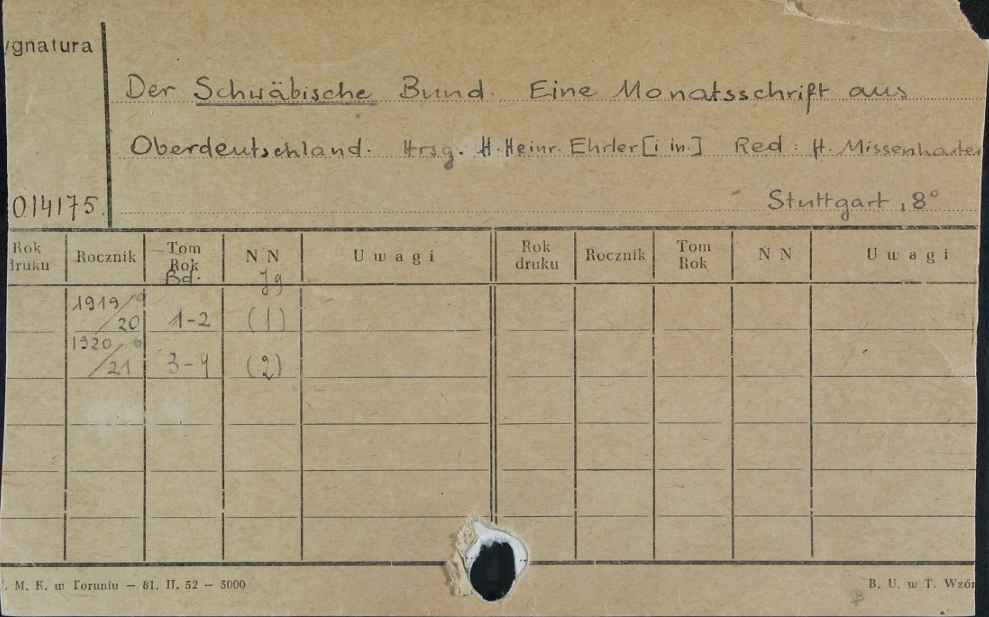 ygnatura
Der Schwäbische Bund. Eine Monatsschrift aus
Oberdeutschland. Hrsg. H. Heinr. Ehrler [i in.] Red: H. Missenharter
014175
Stuttgart, 8°
Rok druku Rocznik Tom Rok Bd. N N Jg U w a g i Rok druku Rocznik Tom Rok N N U w a g i
1919/20 1-2 (1)
1920/21 3-4 (2)
. M. K. w Toruniu — 81. II. 52 — 5000
B. U. w T. Wzór